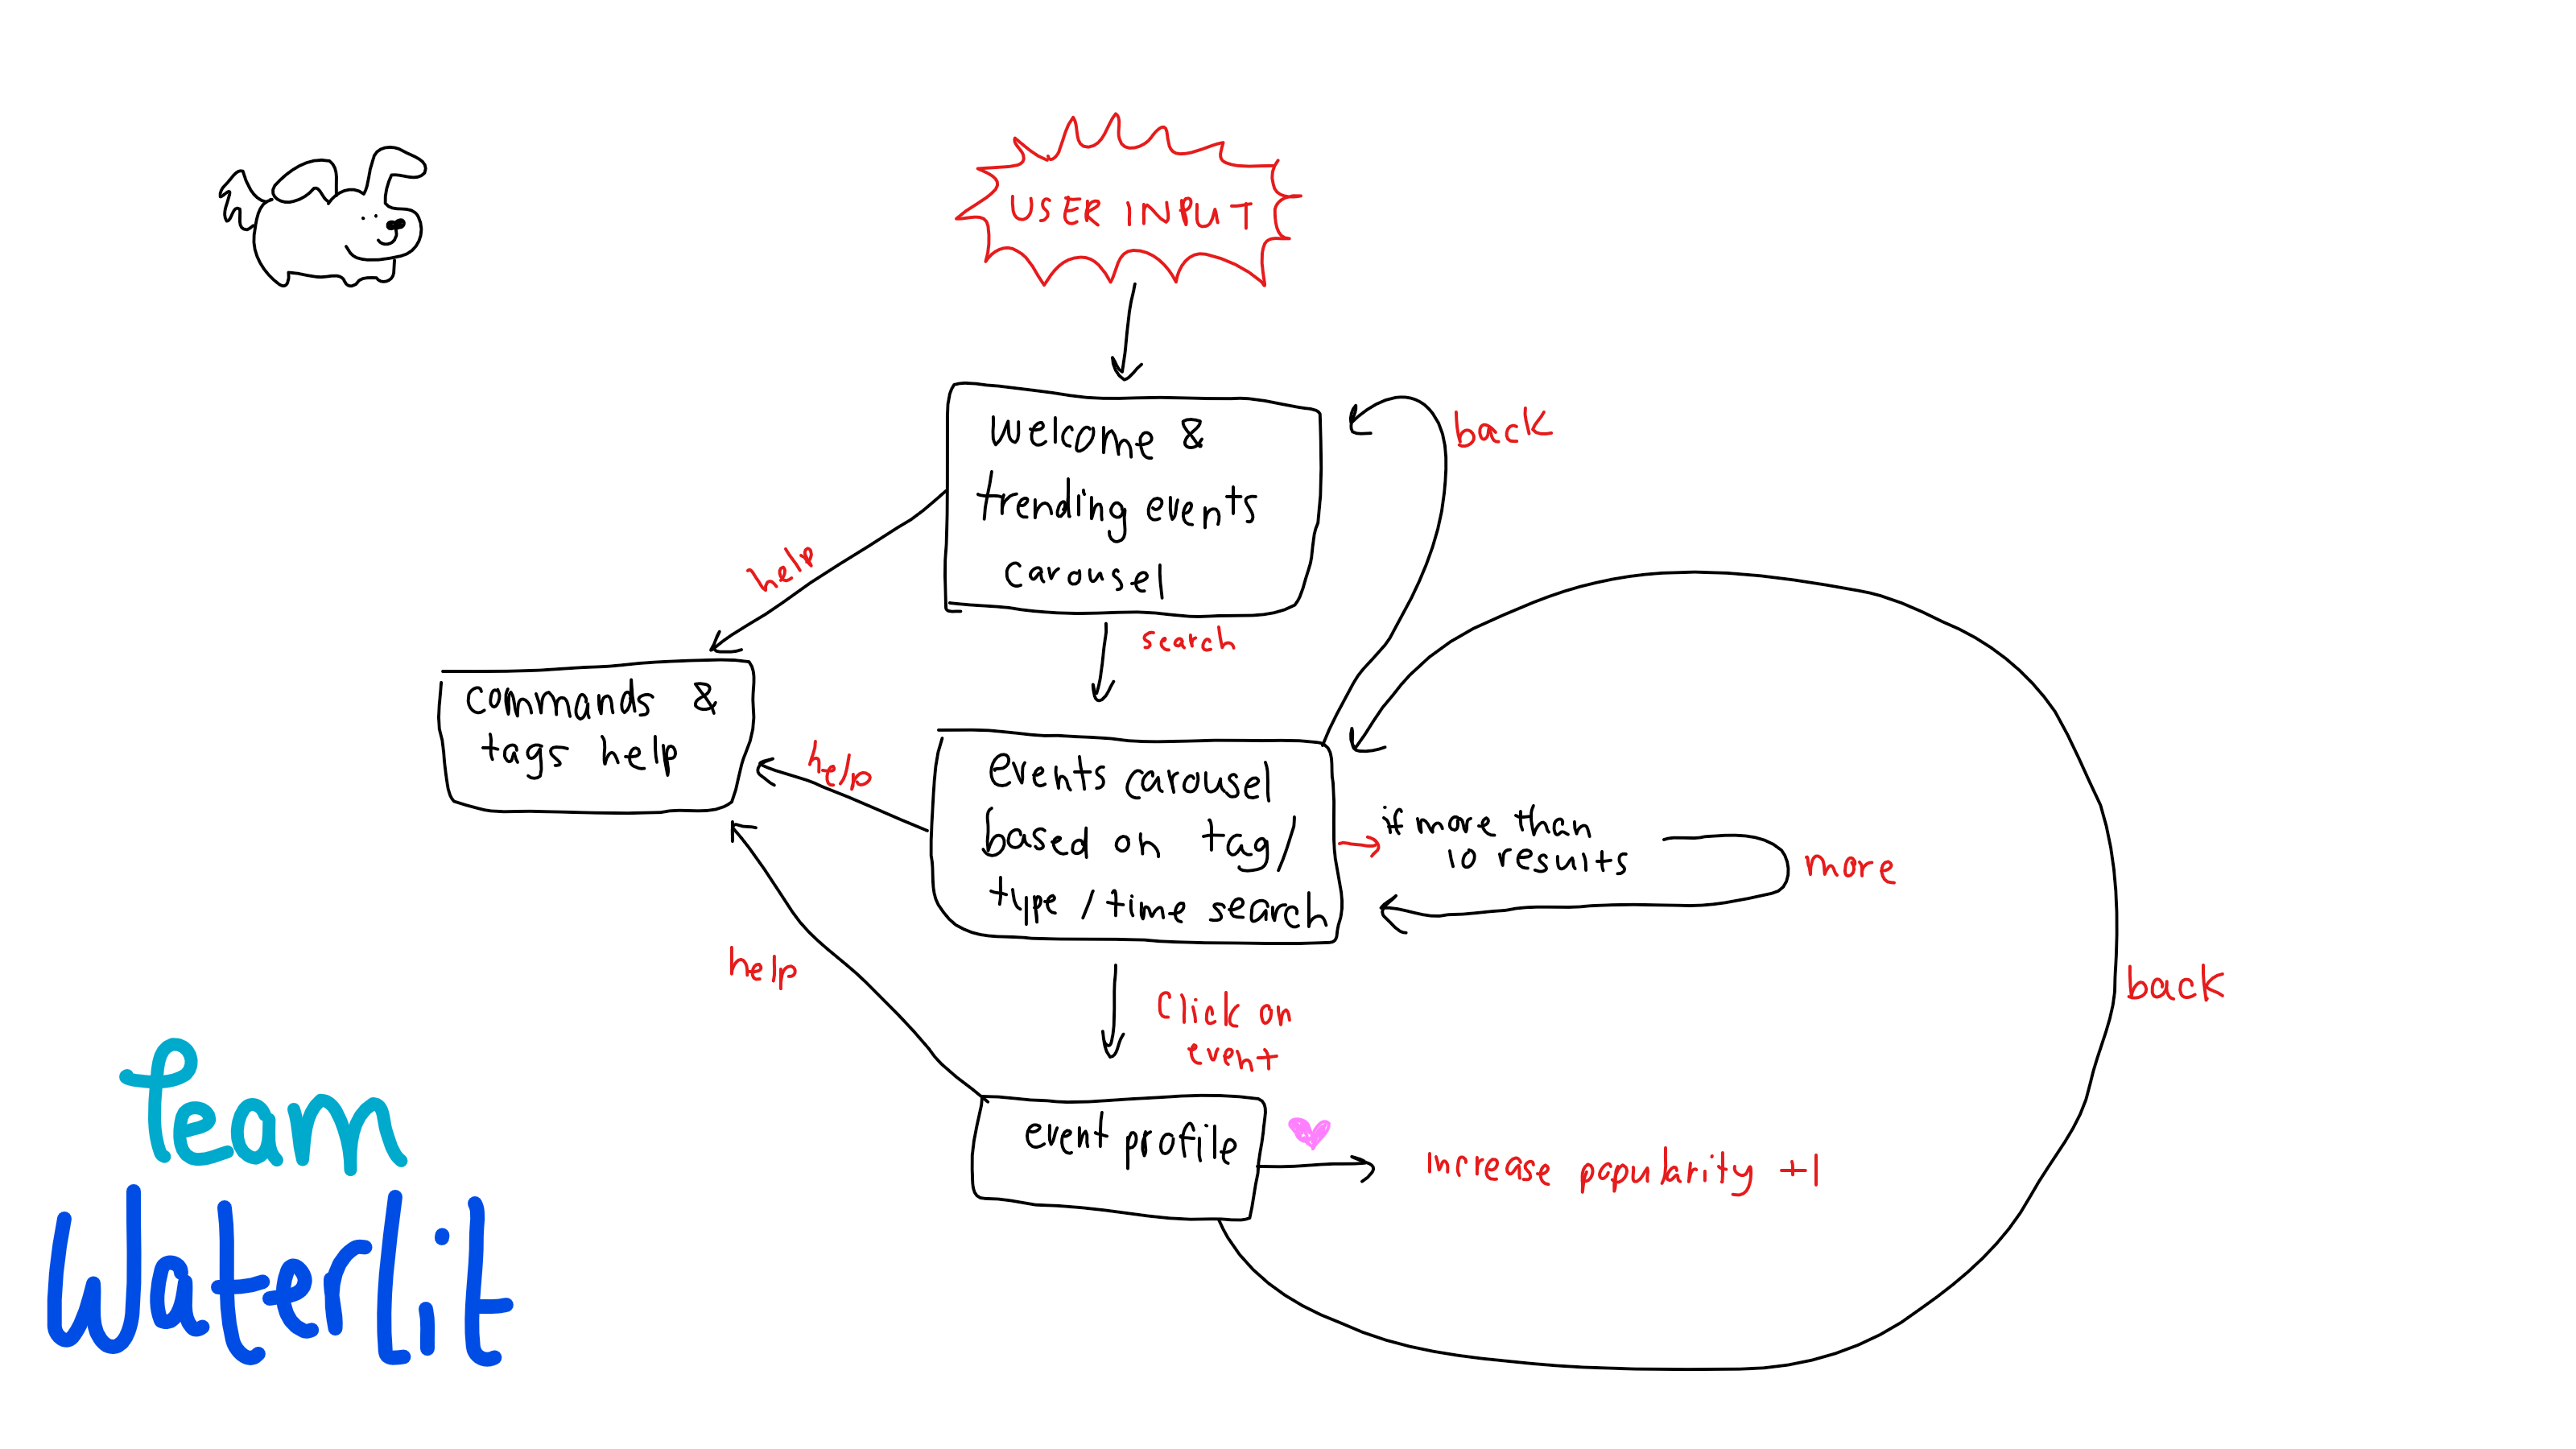 USER INPUT
welcome &
trending events
carousel
back
help
search
commands &
tags help
help
events carousel
based on tag/
type/time search
if more than
10 results
more
help
click on
event
back
event profile
increase popularity +1
Team
Waterlit